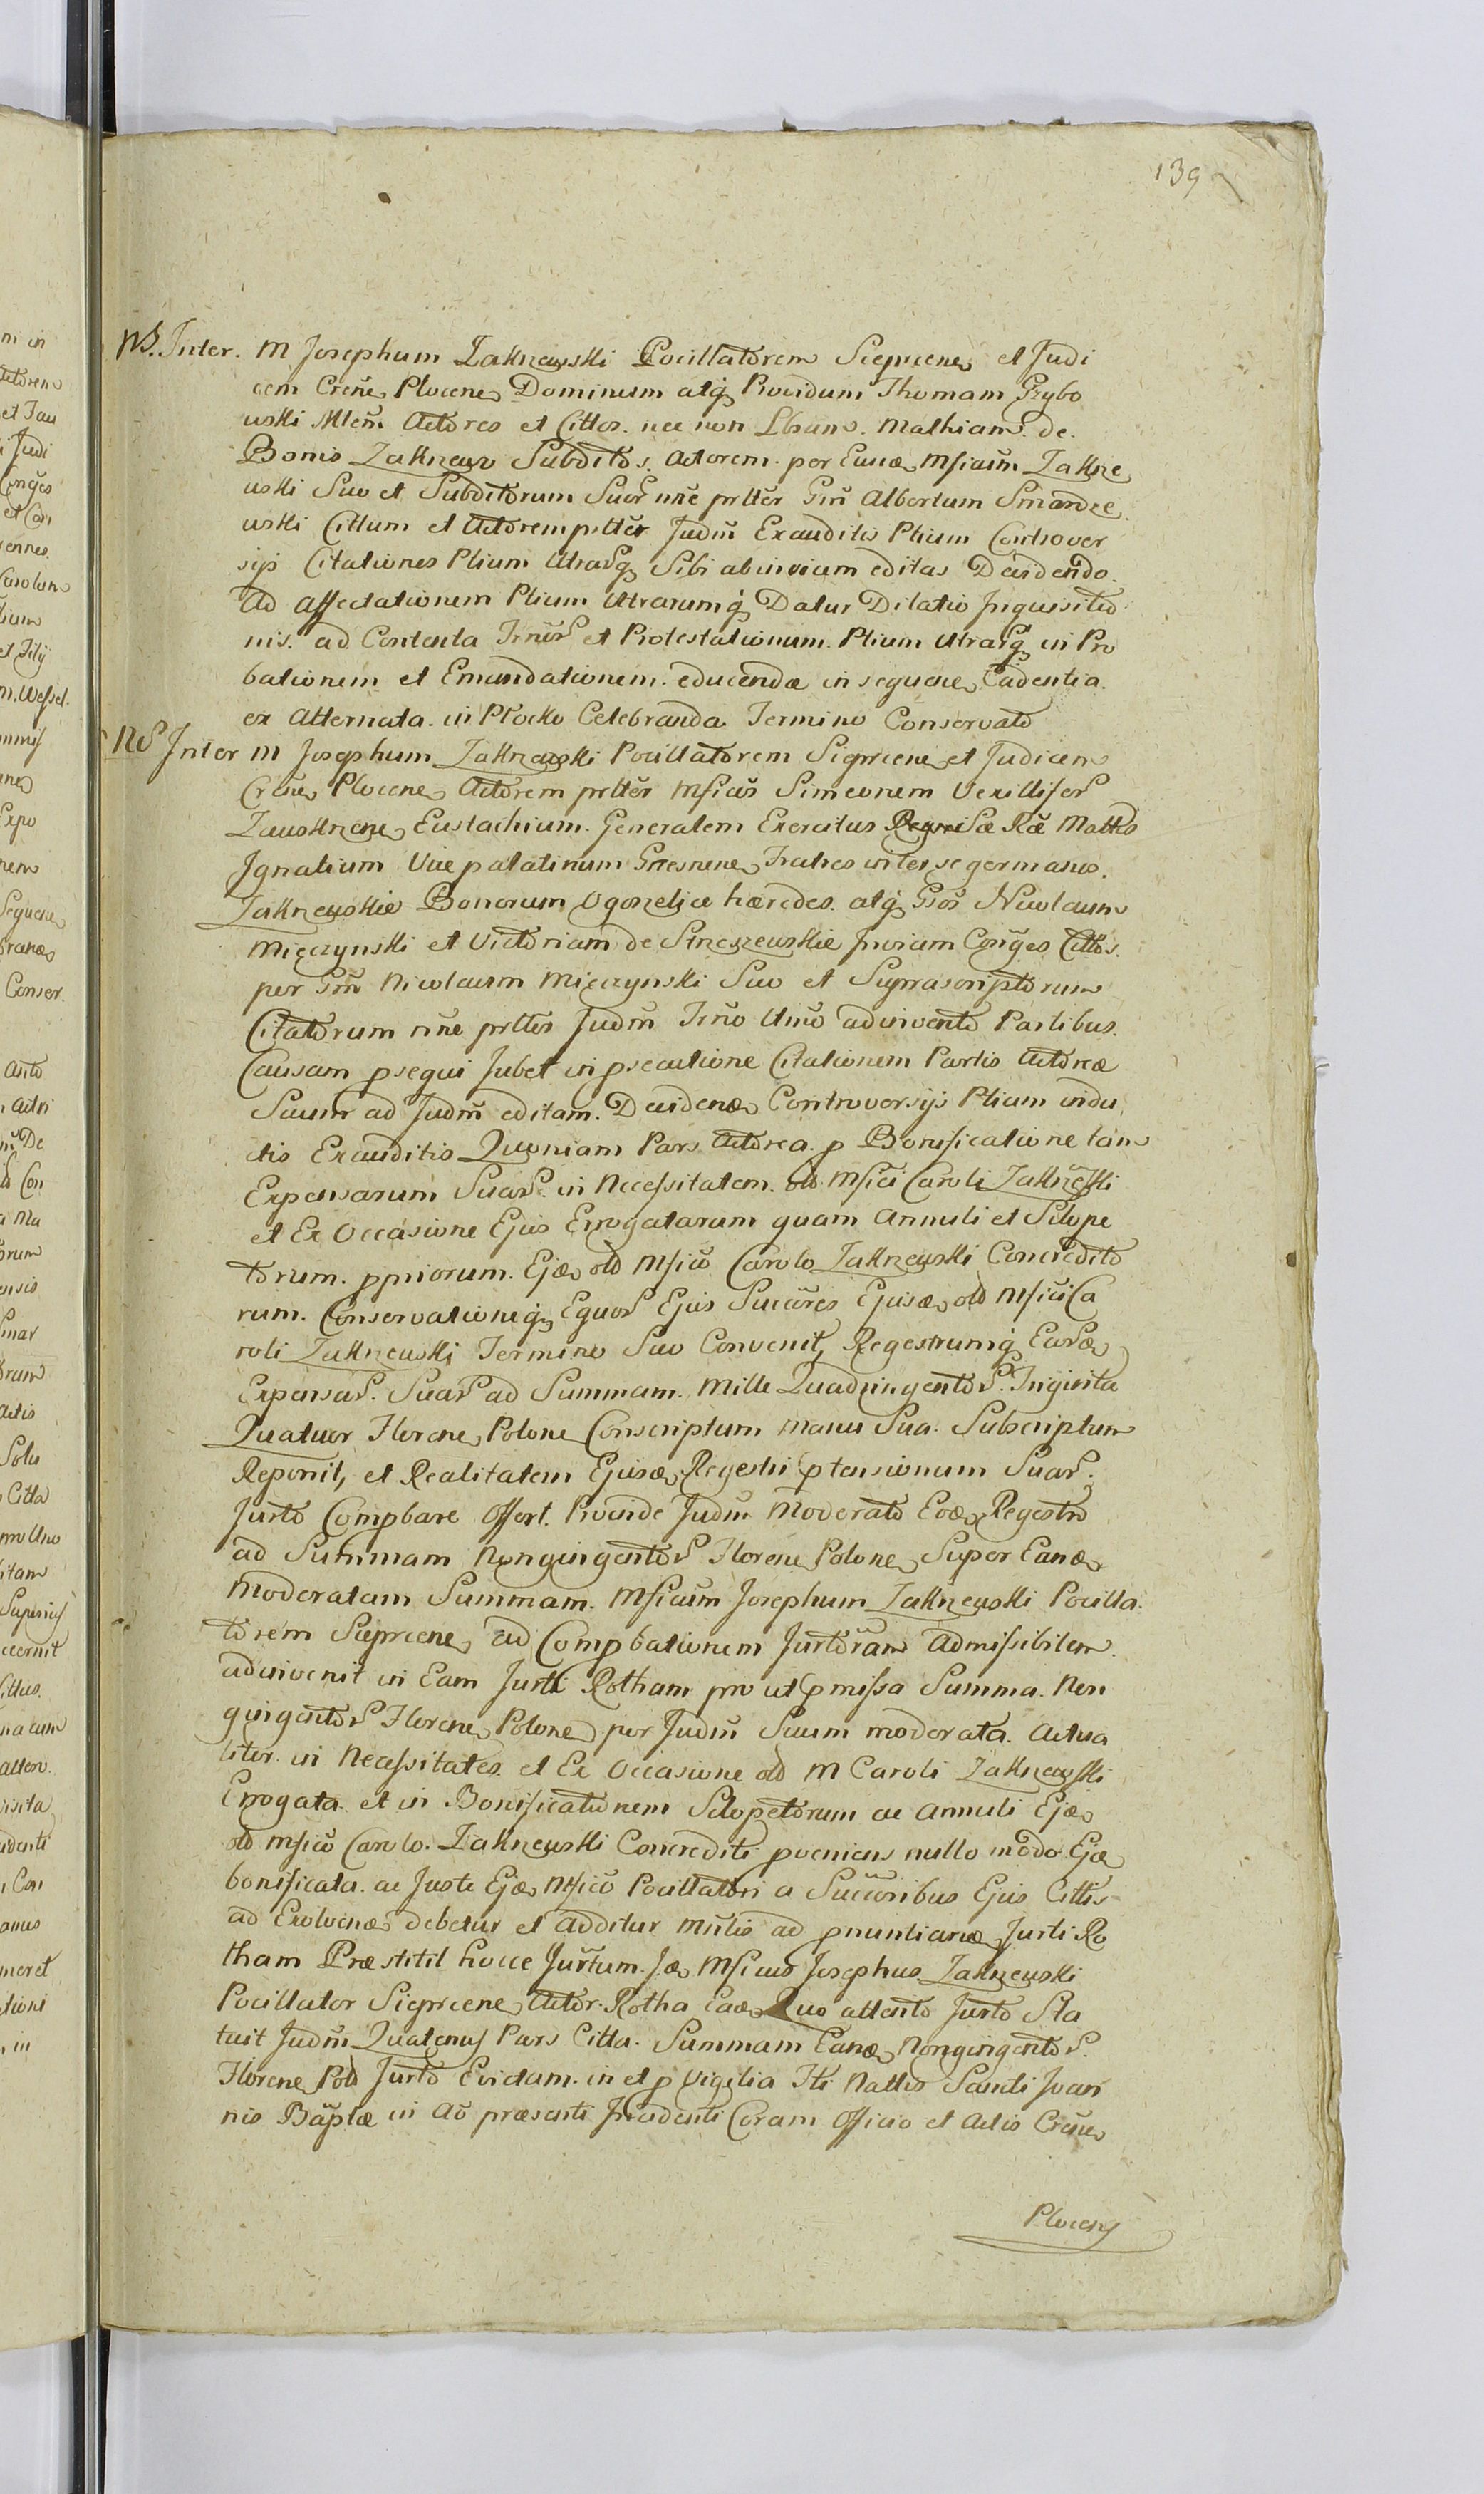 139
NB. Inter. M Josephum Zakrzewski Pocillatorem Sieprcene et Judi
cem Crēne Plocene Dominum atq̨ Providum Thomam Grybo
wski Mlen̄ Actores et Cittos. nec non Lbrum. Mathiam de
Bonis Zakrzewo Subditos. Actorem per Eunæ Mficum̄ Zakrze
wski Suo et Subditorum Suor̄ nn̄e prltēr Gm̄ Albertum Smardze
wski Cittum et Actorem prltēr Judm̄ Exauditis Ptium Controver
sijs Citationes Ptium utrasq̨ Sibi abinvicem editas Decidendo.
Ad affectationem Ptium Utrarumq̨ Datur Dilatio Inquisitio
nis. ad Contenta Trn̄or̄ et Protestationum. Ptium utrasq̨ in Pro
bationem et Emundationem. educendæ in sequene Cadentia.
ex Alternata. in Płocko Celebranda Termino Conservato
NB Inter M Josephum Zakrzewski Pocillatorem Sieprcene et Judicem
Crēne Plocene Actorem prltēr Mficos̄ Simeonem Vexilliser̄
Zauskrzene Eustachium. Generalem Exercitus Sæ Ræ Mattis
Ignatium Vicepalatinum Gnesnene Fratres inter se germanos.
Zakrzewskie Bonorum Ogorzelice hæredes. atq̨ Gsos̄ Nicolaum
Mięczynski et Victoriam de Strzeszewskie Invicem Con̄ges Cittos.
per Gm̄ Nicolaum Mięczynski Suo et Suprascriptorum
Citatorum nn̄e prltēr Judm̄ Trn̄o Um̄o adinvento Partibus.
Causam psequi Jubet in psecutione Citationem Partis Actoreæ
Suum ad Judm̄ editam. Decidenæ Controversijs Ptium indu
ctis Exauditis Quoniam Pars Actorea. p Bonificatione tam
Expensarum Suar̄. in Necessitatem. olo Mfici Caroli Zakrzewski
et Ex Occasione Ejus Errogatarum quam Annuli et Sclope
torum. ppriorum. Ejæ olo Mfico Carolo Zakrzewski Concredito
rum. Conservationeq̨ Equor̄ Ejus Succōres Ejusæ olo Mfici Ca
roli Zakrzewski Termino Suo Convenit, Regestrumq̨ Earæ
Expensar̄. Suar̄ ad Summam. Mille Quadringentor̄. Triginta
Quatuor Florene, Polone Conscriptum manu Sua. Subscriptum
Reponit, et Realitatem Ejusæ Regestri ptensionum Suar̄.
Jurto Compbare Offert. Proinde Judm̄ Moderato Eoæ Regestro
ad Summam Nongingentor̄ Florene Polone, Super Eanæ
Moderatam Summam. Mficum̄ Josephum Zakrzewski Pocilla
torem Sieprcene ad Compbationem Jurtōram Admissibilem.
adinvenit in Eam Jurti Rotham pro ut pmissa Summa. Non
gingentor̄ Florene, Polone per Judm̄ Suum moderata. Actua
liter. in Necessitates. et Ex Occasione olo M Caroli Zakrzewski
Errogata et in Bonificationem Sclopetorum ac Annuli Ejæ
olo Mfico Carolo. Zakrzewski Concrediti pveniens nullo modo Ejæ
bonificata. ac Juste Ejæ Mfico Pocillatori a Succōribus Ejus Cittis
ad Exolvenæ debetur et Additur Mn̄tis ad pnuntianæ Jurti Ro
tham Præstitit hocce Jurtum. Jæ Mficus Josephus Zakrzewski
Pocillator Sieprcene Actor. Rotha Eaæ Quo attento Jurto Sta
tuit Judm̄ Quatenus Pars Citta. Summam Eanæ Nongingentor̄.
Florene Polo Jurto Evictam. in et p Vigilia Fti Nattis Sancti Joan
nis Bap̄tæ in Ao præsenti Incidenti Coram Officio et Actis Crēne
Plocens